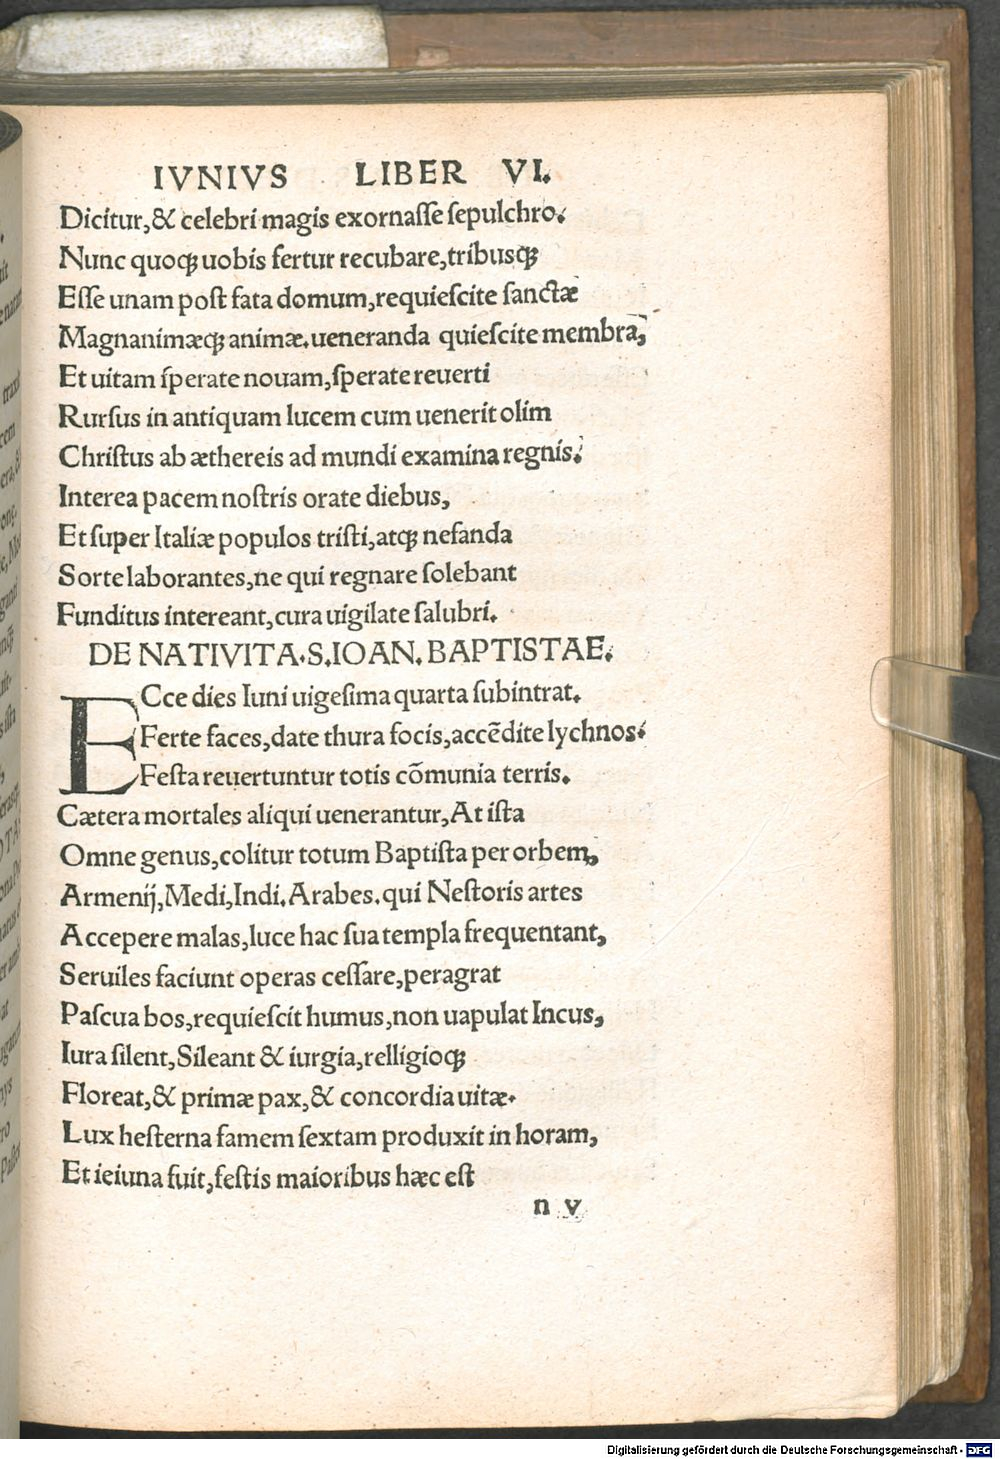 IVNIVS LIBER VI.
Dicitur,& celebri magis exornaſſe ſepulchro.
Nunc quoqꝫ uobis fertur recubare,tribusqꝫ
Eſſe unam poſt fata domum,requieſcite ſanctæ
Magnanimæqꝫ animæ.ueneranda quieſcite membra,
Et uitam ſperate nouam,ſperate reuerti
Rurſus in antiquam lucem cum uenerit olim
Chriſtus ab æthereis ad mundi examina regnis.
Interea pacem noſtris orate diebus,
Et ſuper Italiæ populos triſti,atqꝫ nefanda
Sorte laborantes,ne qui regnare ſolebant
Funditus intereant,cura uigilate ſalubri.
DE NATIVITA.S.IOAN.BAPTISTAE.
ECce dies Iuni uigeſima quarta ſubintrat.
Ferte faces,date thura focis,accēdite lychnos.
Feſta reuertuntur totis cōmunia terris.
Cætera mortales aliqui uenerantur,At iſta
Omne genus,colitur totum Baptiſta per orbem,
Armenij,Medi,Indi.Arabes.qui Neſtoris artes
Accepere malas,luce hac ſua templa frequentant,
Seruiles faciunt operas ceſſare,peragrat
Paſcua bos,requieſcit humus,non uapulat Incus,
Iura ſilent,Sileant & iurgia,relligioqꝫ
Floreat,& primæ pax,& concordia uitæ.
Lux heſterna famem ſextam produxit in horam,
Et ieiuna fuit,feſtis maioribus hæc eſt
n v
Digitalisierung gefördert durch die Deutsche Forschungsgemeinschaft - DFG